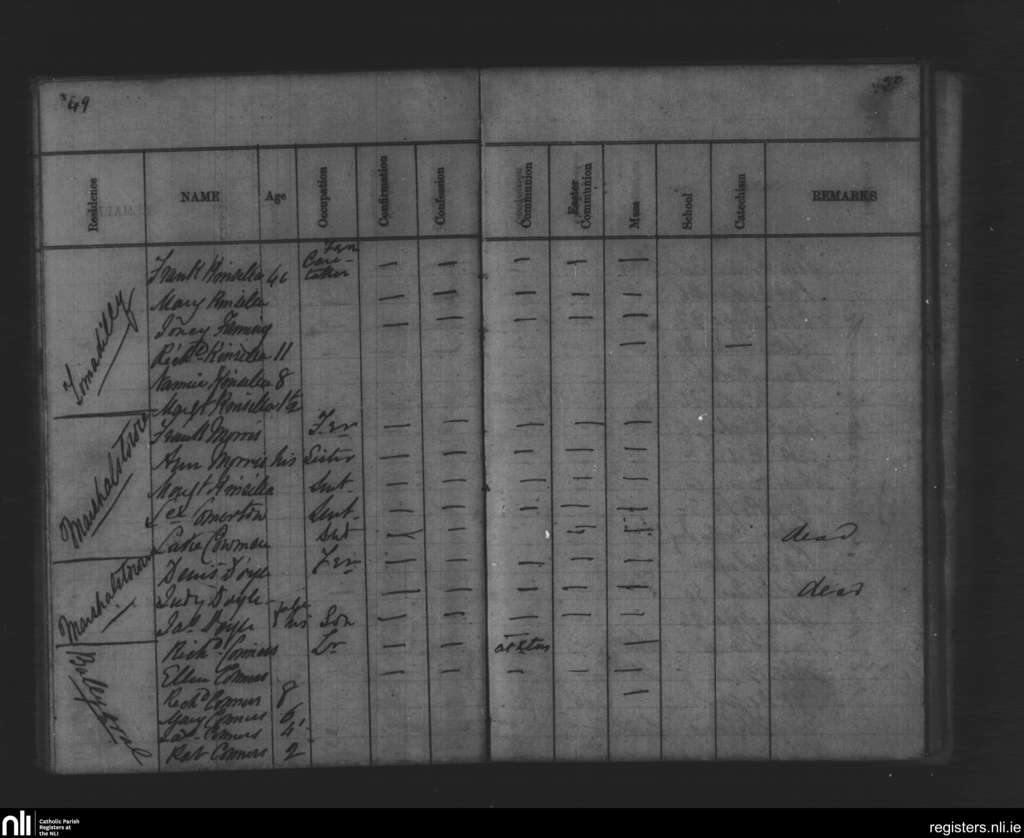 49
Residence NAME Age Occupation Confirmation Confession Communion Easter Communion Mass School Catechism REMARKS
Tomadilly
Frank Kinsella 46 Far Care-taker — — — — —
Mary Kinsella — — — — —
Fleming — — — — —
Richd Kinsella 11 — —
Nannie Kinsella 8
Margt Kinsella 1½
Marshalstown
Frank Morris Fer — — — — —
Ann Morris his Sister — — — — —
Margt Kinsella Sert — — — — —
Comerton Sert — — — — —
Cowman Sert dead
Marshalstown
Denis Doyle Fer — — — — —
Judy Doyle — — — — — dead
Jas Doyle & his Son — — — — —
Ballygoral
Richd Connors Lr — — at Xtas —
Ellen Connors — — — — —
Richd Connors 8 —
Mary Connors 6
Jas Connors 4
Kat Connors 2
nli
Catholic Parish
Registers at
the NLI
registers.nli.ie